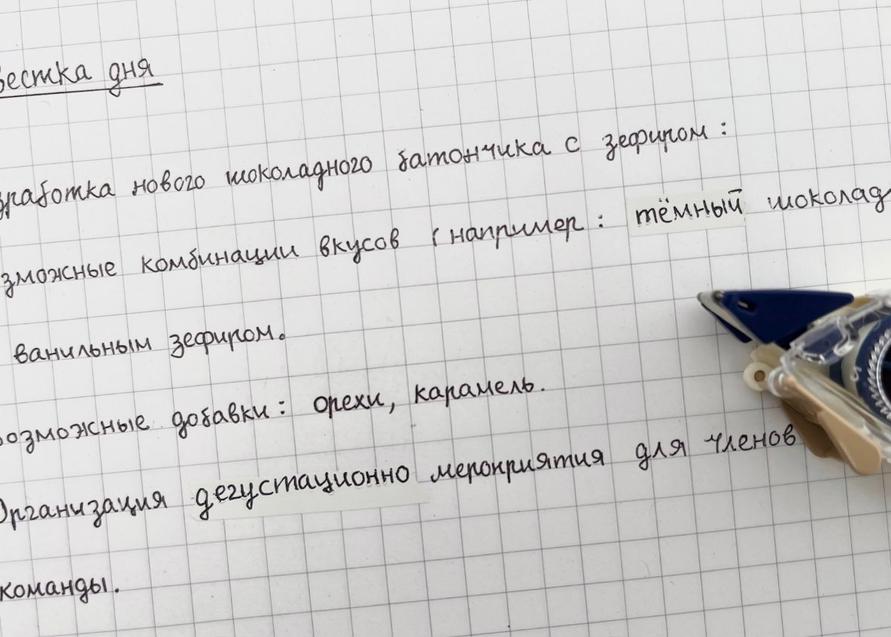 вестка дня
зработка нового шоколадного батончика с зефиром:
зможные комбинации вкусов (например: тёмный шоколад
ванильным зефиром.
озможные добавки: орехи, карамель.
Организация дегустационно мероприятия для членов
команды.